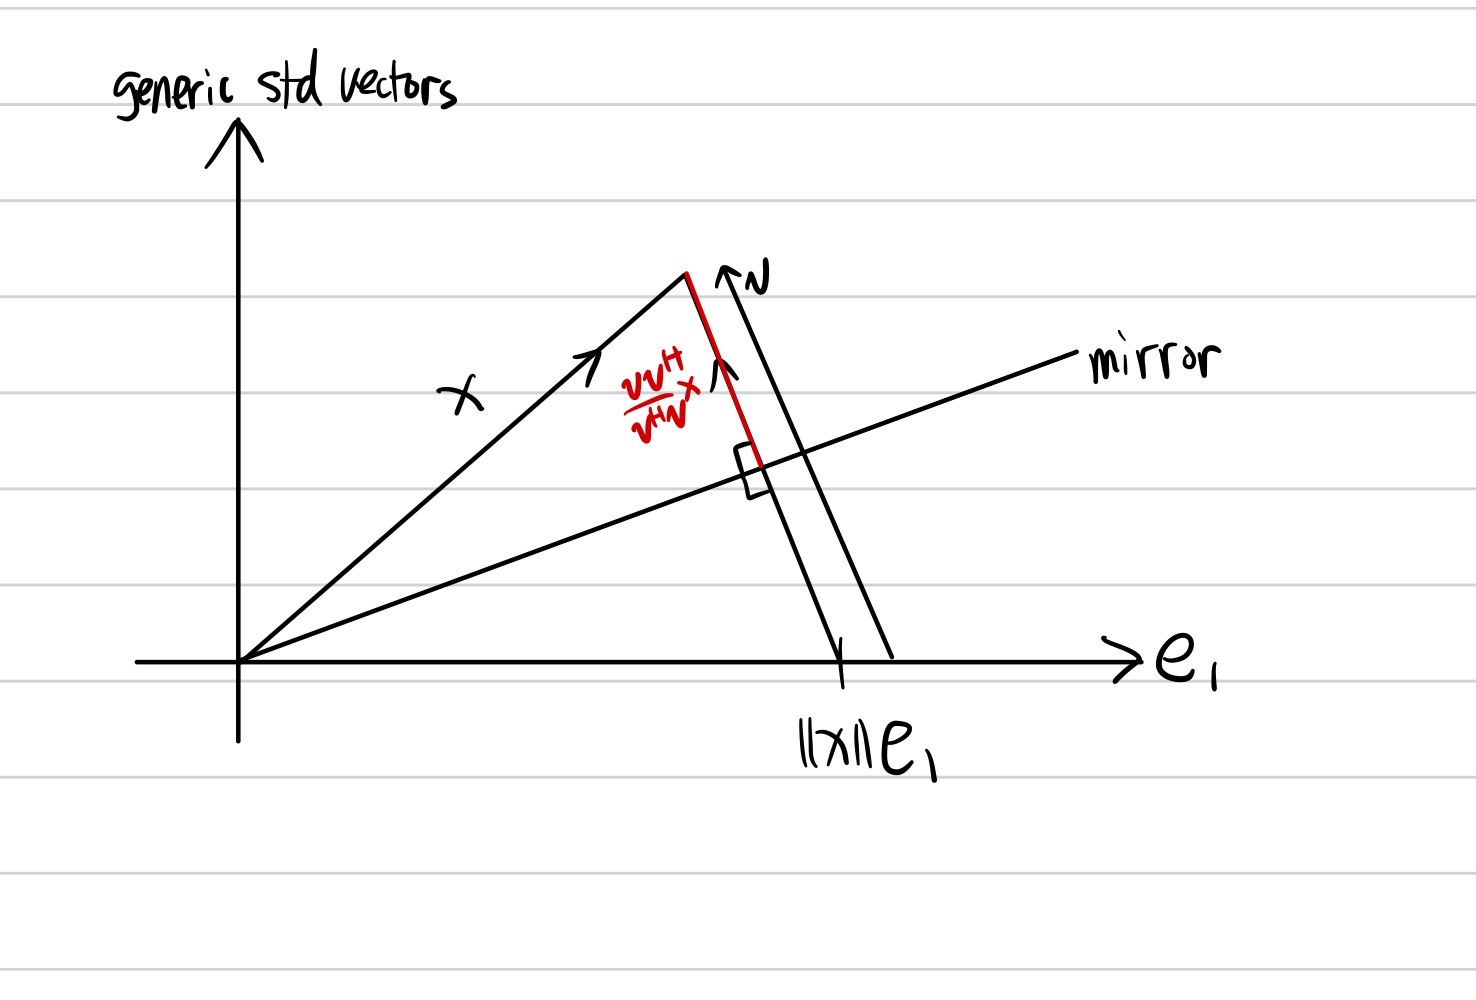 generic std vectors
v
mirror
x
vvᴴ/vᴴv x
e₁
||x||e₁